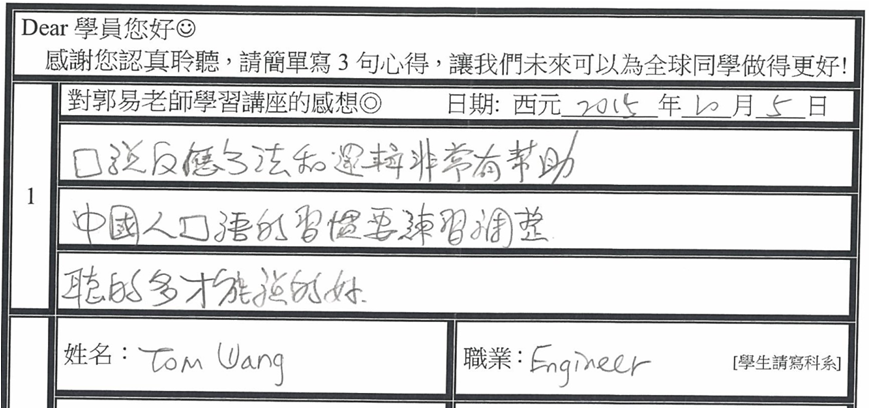 Dear 學員您好☺
感謝您認真聆聽，請簡單寫 3 句心得，讓我們未來可以為全球同學做得更好!
對郭易老師學習講座的感想◎ 日期: 西元 2015 年 10 月 5 日
1
口說反應方法和邏輯非常有幫助
中國人口語的習慣要練習調整
聽的多才能說的好.
姓名：Tom Wang 職業：Engineer [學生請寫科系]